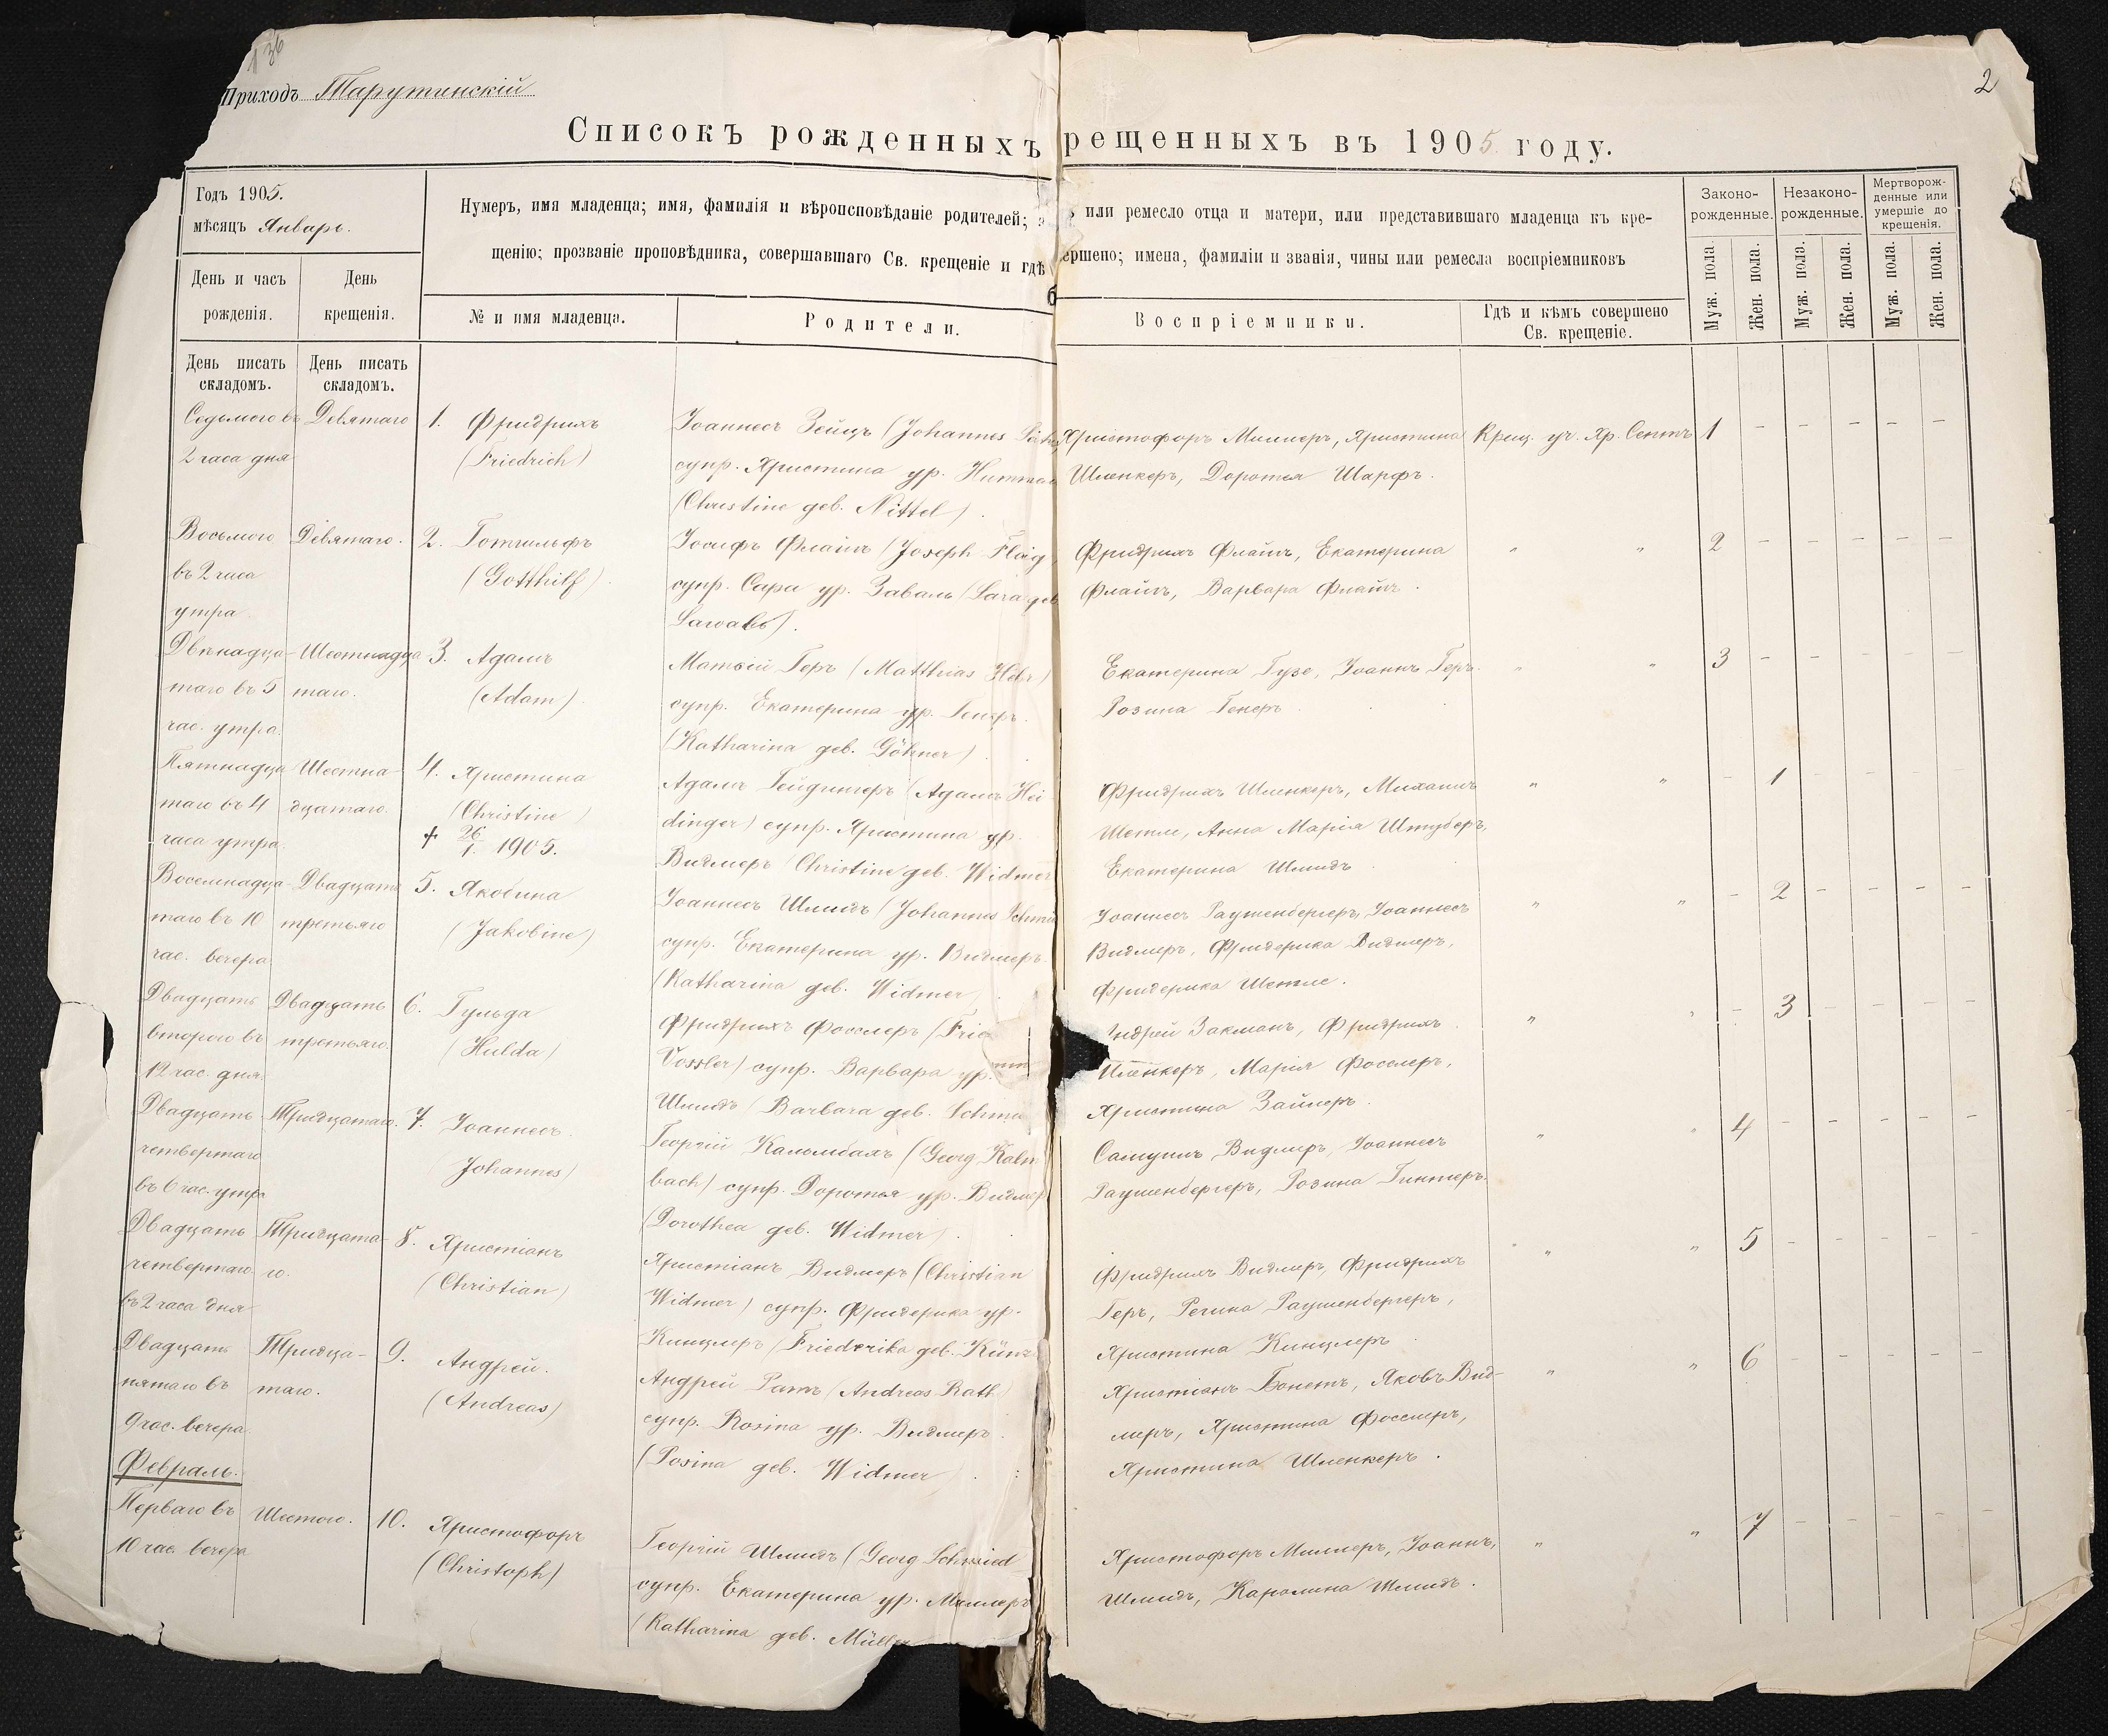 136
2
Приходъ Тарутинскій
Списокъ рожденныхъ рещенныхъ въ 1905 году.
Годъ 1905.
мѣсяцъ Январь.
Нумеръ, имя младенца; имя, фамилія и вѣроисповѣданіе родителей; з ъ или ремесло отца и матери, или представившаго младенца къ кре-
щенію; прозваніе проповѣдника, совершавшаго Св. крещеніе и гдѣ б ершено; имена, фамиліи и званія, чины или ремесла воспріемниковъ
Законо-
рожденные.
Незаконо-
рожденные.
Мертворож-
денные или
умершіе до
крещенія.
Муж. пола.
Жен. пола.
Муж. пола.
Жен. пола.
Муж. пола.
Жен. пола.
День и часъ
рожденія.
День
крещенія.
№ и имя младенца.
Родители.
Воспріемники.
Гдѣ и кѣмъ совершено
Св. крещеніе.
День писать
складомъ.
День писать
складомъ.
Седьмого въ
2 часа дня
Девятаго
1. Фридрихъ
(Friedrich)
Іоаннесъ Зейцъ (Johannes
супр. Христина ур.
(Christine geb. Nittel).
Христофоръ Миллеръ, Христина
Шленкеръ, Доротея Шарфъ.
Крещ. уч. Хр. Сентъ
1 – – – – –
Восьмого
въ 2 часа
утра.
Девятаго.
2. Готгильфъ
(Gotthilf).
Іосифъ Флайгъ (Joseph Flaig,
супр. Сара ур. Заваль (Sara geb
Sawall).
Фридрихъ Флайгъ, Екатерина
Флайгъ, Варвара Флайгъ.
" "
2 – – – – –
Двѣнадца-
таго въ 5
час. утра.
Шестнадца-
таго.
3. Адамъ
(Adam).
Матвѣй Геръ (Matthias Höhr)
супр. Екатерина ур. Генеръ.
(Katharina geb. Göhner).
Екатерина Гузе, Іоаннъ Геръ.
Розина Генеръ.
" "
3 – – – – –
Пятнадца
таго въ 4
часа утра.
Шестна-
дцатаго.
4. Христина
(Christine)
+ 26/1. 1905.
Адамъ Гейдингеръ (Адамъ Hei
dinger) супр. Христина ур.
Видмеръ (Christine geb. Widmer
Фридрихъ Шленкеръ, Михаилъ
Шетле, Анна Марія Штуберъ,
Екатерина Шмидъ.
" "
– 1 – – – –
Восемнадца-
таго въ 10
час. вечера.
Двадцать
третьяго
5. Якобина
(Jakobine)
Іоаннесъ Шмидъ (Johannes Schmi
супр. Екатерина ур. Видмеръ.
(Katharina geb. Widmer).
Іоаннесъ Раушенбергеръ, Іоаннесъ
Видмеръ, Фридерика Видмеръ,
Фридерика Шетле.
" "
– 2 – – – –
Двадцать
второго въ
12 час. дня.
Двадцать
третьяго.
6. Гульда
(Hulda)
Фридрихъ Фосслеръ (Frie
Vossler) супр. Варвара ур.
Шмидъ (Barbara geb. Schmi
ндрей Закманъ, Фридрихъ
Шленкеръ, Марія Фосслеръ,
Христина Зайлеръ.
" "
– 3 – – – –
Двадцать
четвертаго
въ 6 час. утра
Тридцатаго.
7. Іоаннесъ.
Johannes)
Георгій Кальмбахъ (Georg Kalm
bach) супр. Доротея ур. Видмер
(Dorothea geb. Widmer).
Самуилъ Видмеръ, Іоаннесъ
Раушенбергеръ, Розина Гинтеръ.
" "
4 – – – – –
Двадцать
четвертаго
въ 2 часа дня
Тридцата-
го.
8. Христіанъ
(Christian)
Христіанъ Видмеръ (Christian
Widmer) супр. Фридерика ур.
Кинцлеръ (Friederika geb. Künz
Фридрихъ Видмеръ, Фридрихъ
Геръ, Регина Раушенбергеръ,
Христина Кинцлеръ.
" "
5 – – – – –
Двадцать
пятаго въ
9 час. вечера.
Тридца-
таго.
9. Андрей.
(Andreas)
Андрей Ратъ (Andreas Rath)
супр. Rosina ур. Видмеръ.
(Rosina geb. Widmer).
Христіанъ Бонетъ, Яковъ Вид-
меръ, Христина Фосслеръ,
Христина Шленкеръ.
" "
6 – – – – –
Февраль.
Перваго въ
10 час. вечера
Шестого.
10. Христофоръ
(Christoph)
Георгій Шмидъ (Georg Schmied
супр. Екатерина ур. Миллеръ
(Katharina geb. Müller
Христофоръ Миллеръ, Іоаннъ,
Шмидъ, Каролина Шмидъ.
" "
7 – – – – –